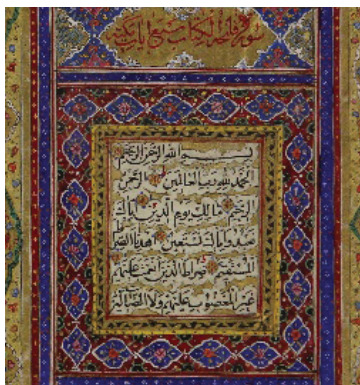 سورة فاتحة الكتاب سبع آيات مكية
بسم الله الرحمن الرحيم
الحمد لله رب العالمين الرحمن
الرحيم مالك يوم الدين اياك
نعبد واياك نستعين اهدنا الصراط
المستقيم صراط الذين انعمت عليهم
غير المغضوب عليهم ولا الضالين